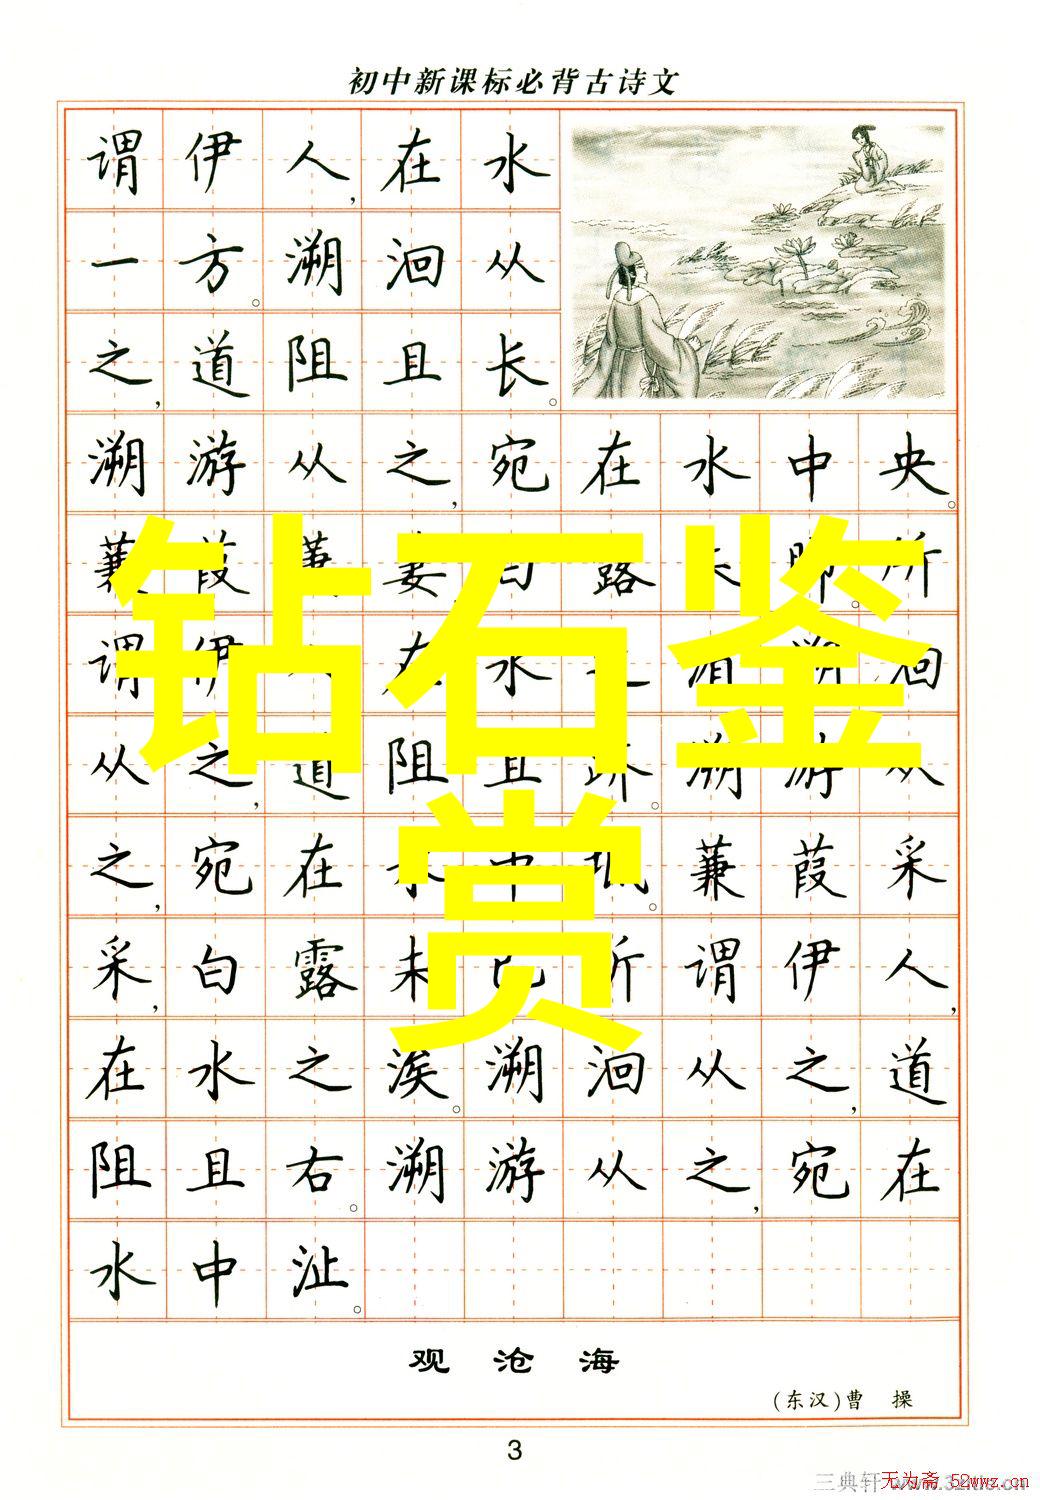 初中新课标必背古诗文
谓伊人,在水
一方。溯洄从
之,道阻且长。
溯游从之,宛在水中央。
蒹葭萋萋,白露未晞。所
谓伊人在水之湄溯洄
从之,道阻且跻。溯游从
之,宛在水中坻。蒹葭采
采,白露未已所谓伊人,
在水之涘。溯洄从之,道
阻且右。溯游从之,宛在
水中沚。
钻石鉴
赏
观沧海
(东汉)曹 操
3
三典轩
无为斋 52wwz.cn